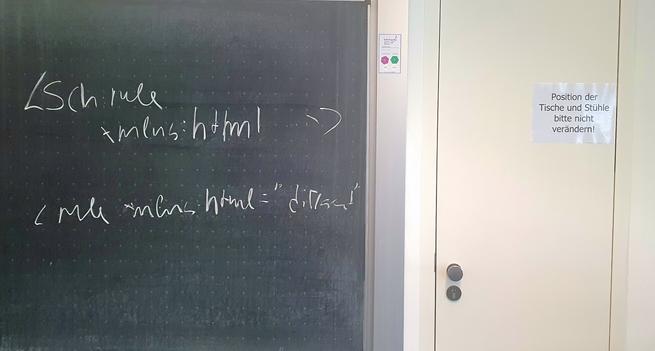 <sch:rule
xmlns:html >
< rule xmlns:html="
Position der
Tische und Stühle
bitte nicht
verändern!